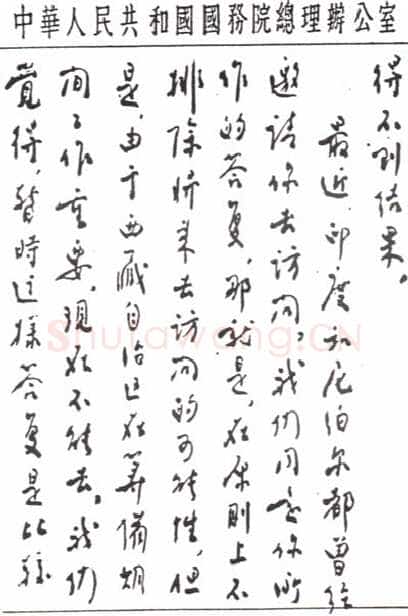 中華人民共和國國務院總理辦公室
得不到结果。
最近印度和尼泊尔都曾经
邀请你去访问，我们同意你所
作的答复，那就是，在原则上不
排除将来去访问的可能性，但
是，由于西藏自治区在筹备期
间工作重要，现在不能去。我们
觉得，暂时这样答复是比较
Shufawang.CN